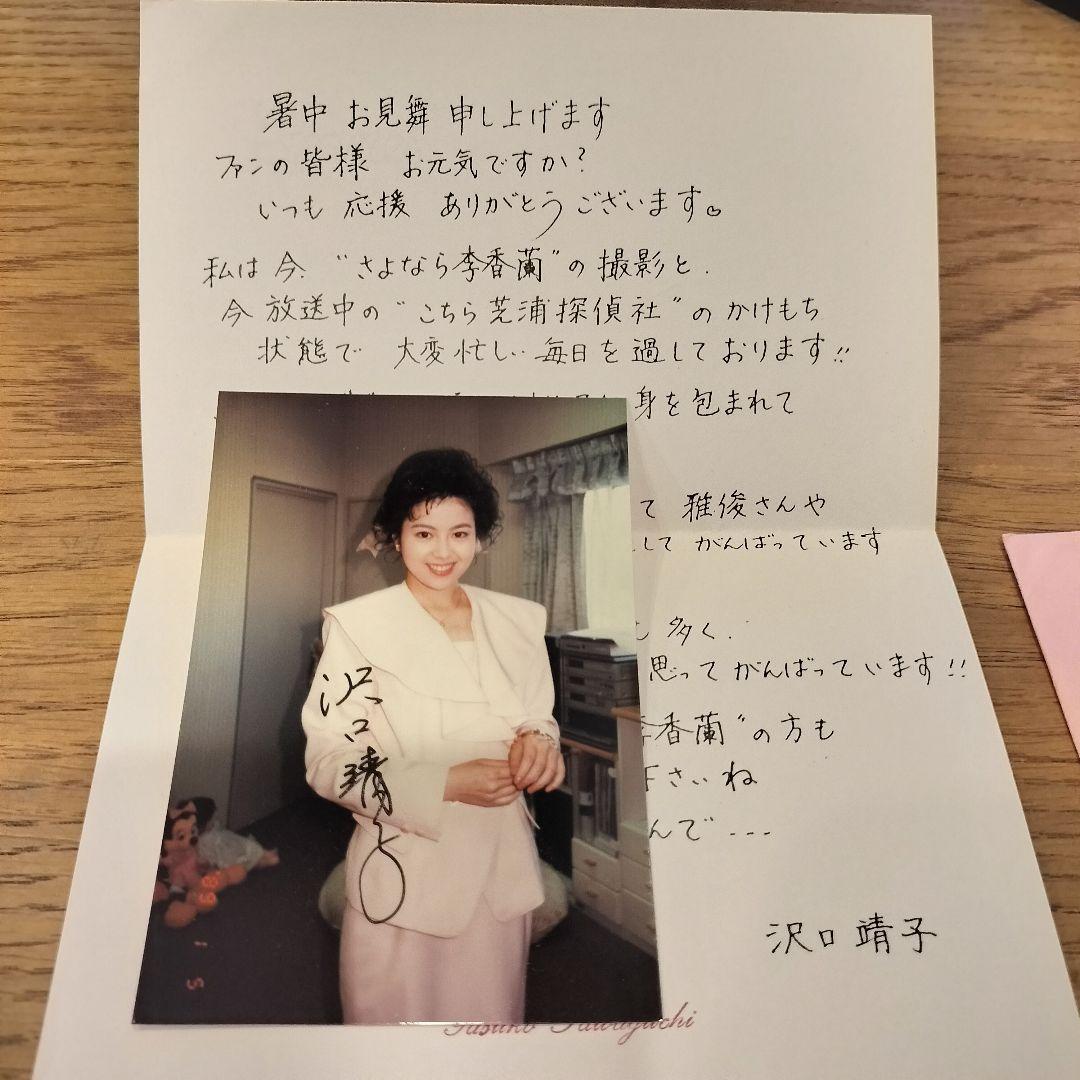 暑中 お見舞 申し上げます
ファンの皆様 お元気ですか?
いつも 応援 ありがとうございます。
私は 今. "さよなら李香蘭"の 撮影と.
今 放送中の"こちら芝浦探偵社"の かけもち
状態で 大変忙しい毎日を過しております!!
身を包まれて
て 雅俊さんや
して がんばっています
多く.
思ってがんばっています!!
香蘭"の方も
下さいね
んで---
沢口靖子
沢口靖子
89 1 5
Yasuko Sawaguchi